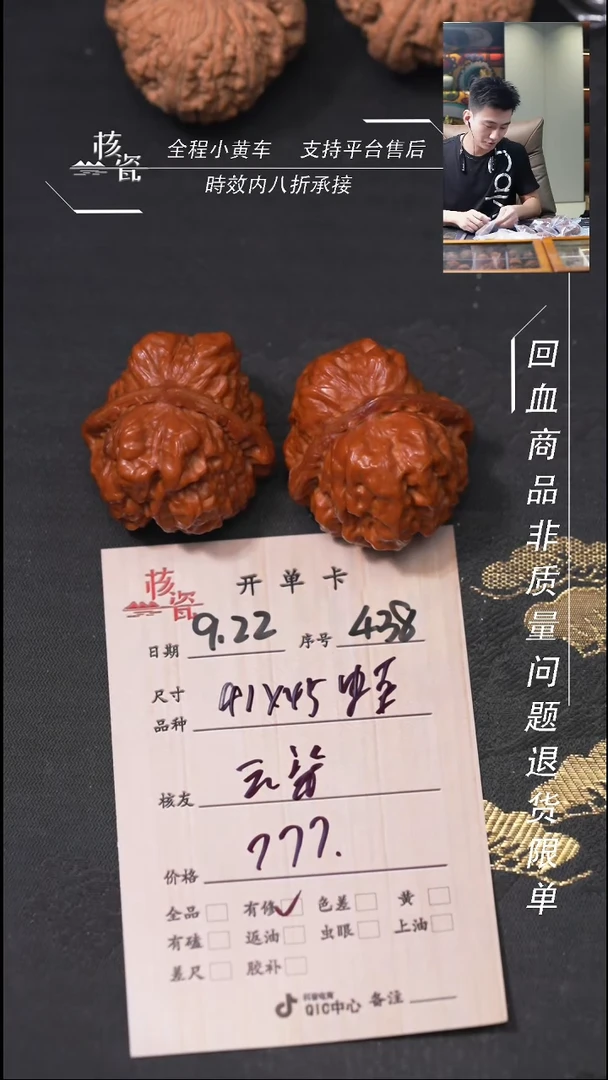 核瓷
全程小黄车 支持平台售后
時效内八折承接
回血商品非质量问题退货限单
核瓷
开单卡
日期 9.22 序号 438
尺寸 41X45
品种
核友
价格 777.
全品 有修 ✓ 色差 黄
有磕 返油 虫眼 上油
差尺 胶补
抖音电商
QIC中心 备注